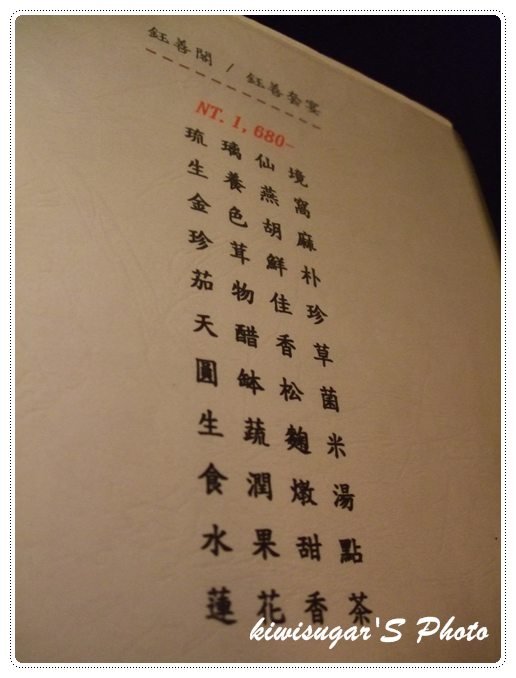 鈺善閣 / 鈺善套宴
NT. 1, 680-
琉璃仙境
生養燕窩
金色胡麻
珍茸鮮朴
茄物佳珍
天醋香草
圓缽松菌
生蔬麴米
食潤燉湯
水果甜點
蓮花香茶
kiwisugar'S Photo